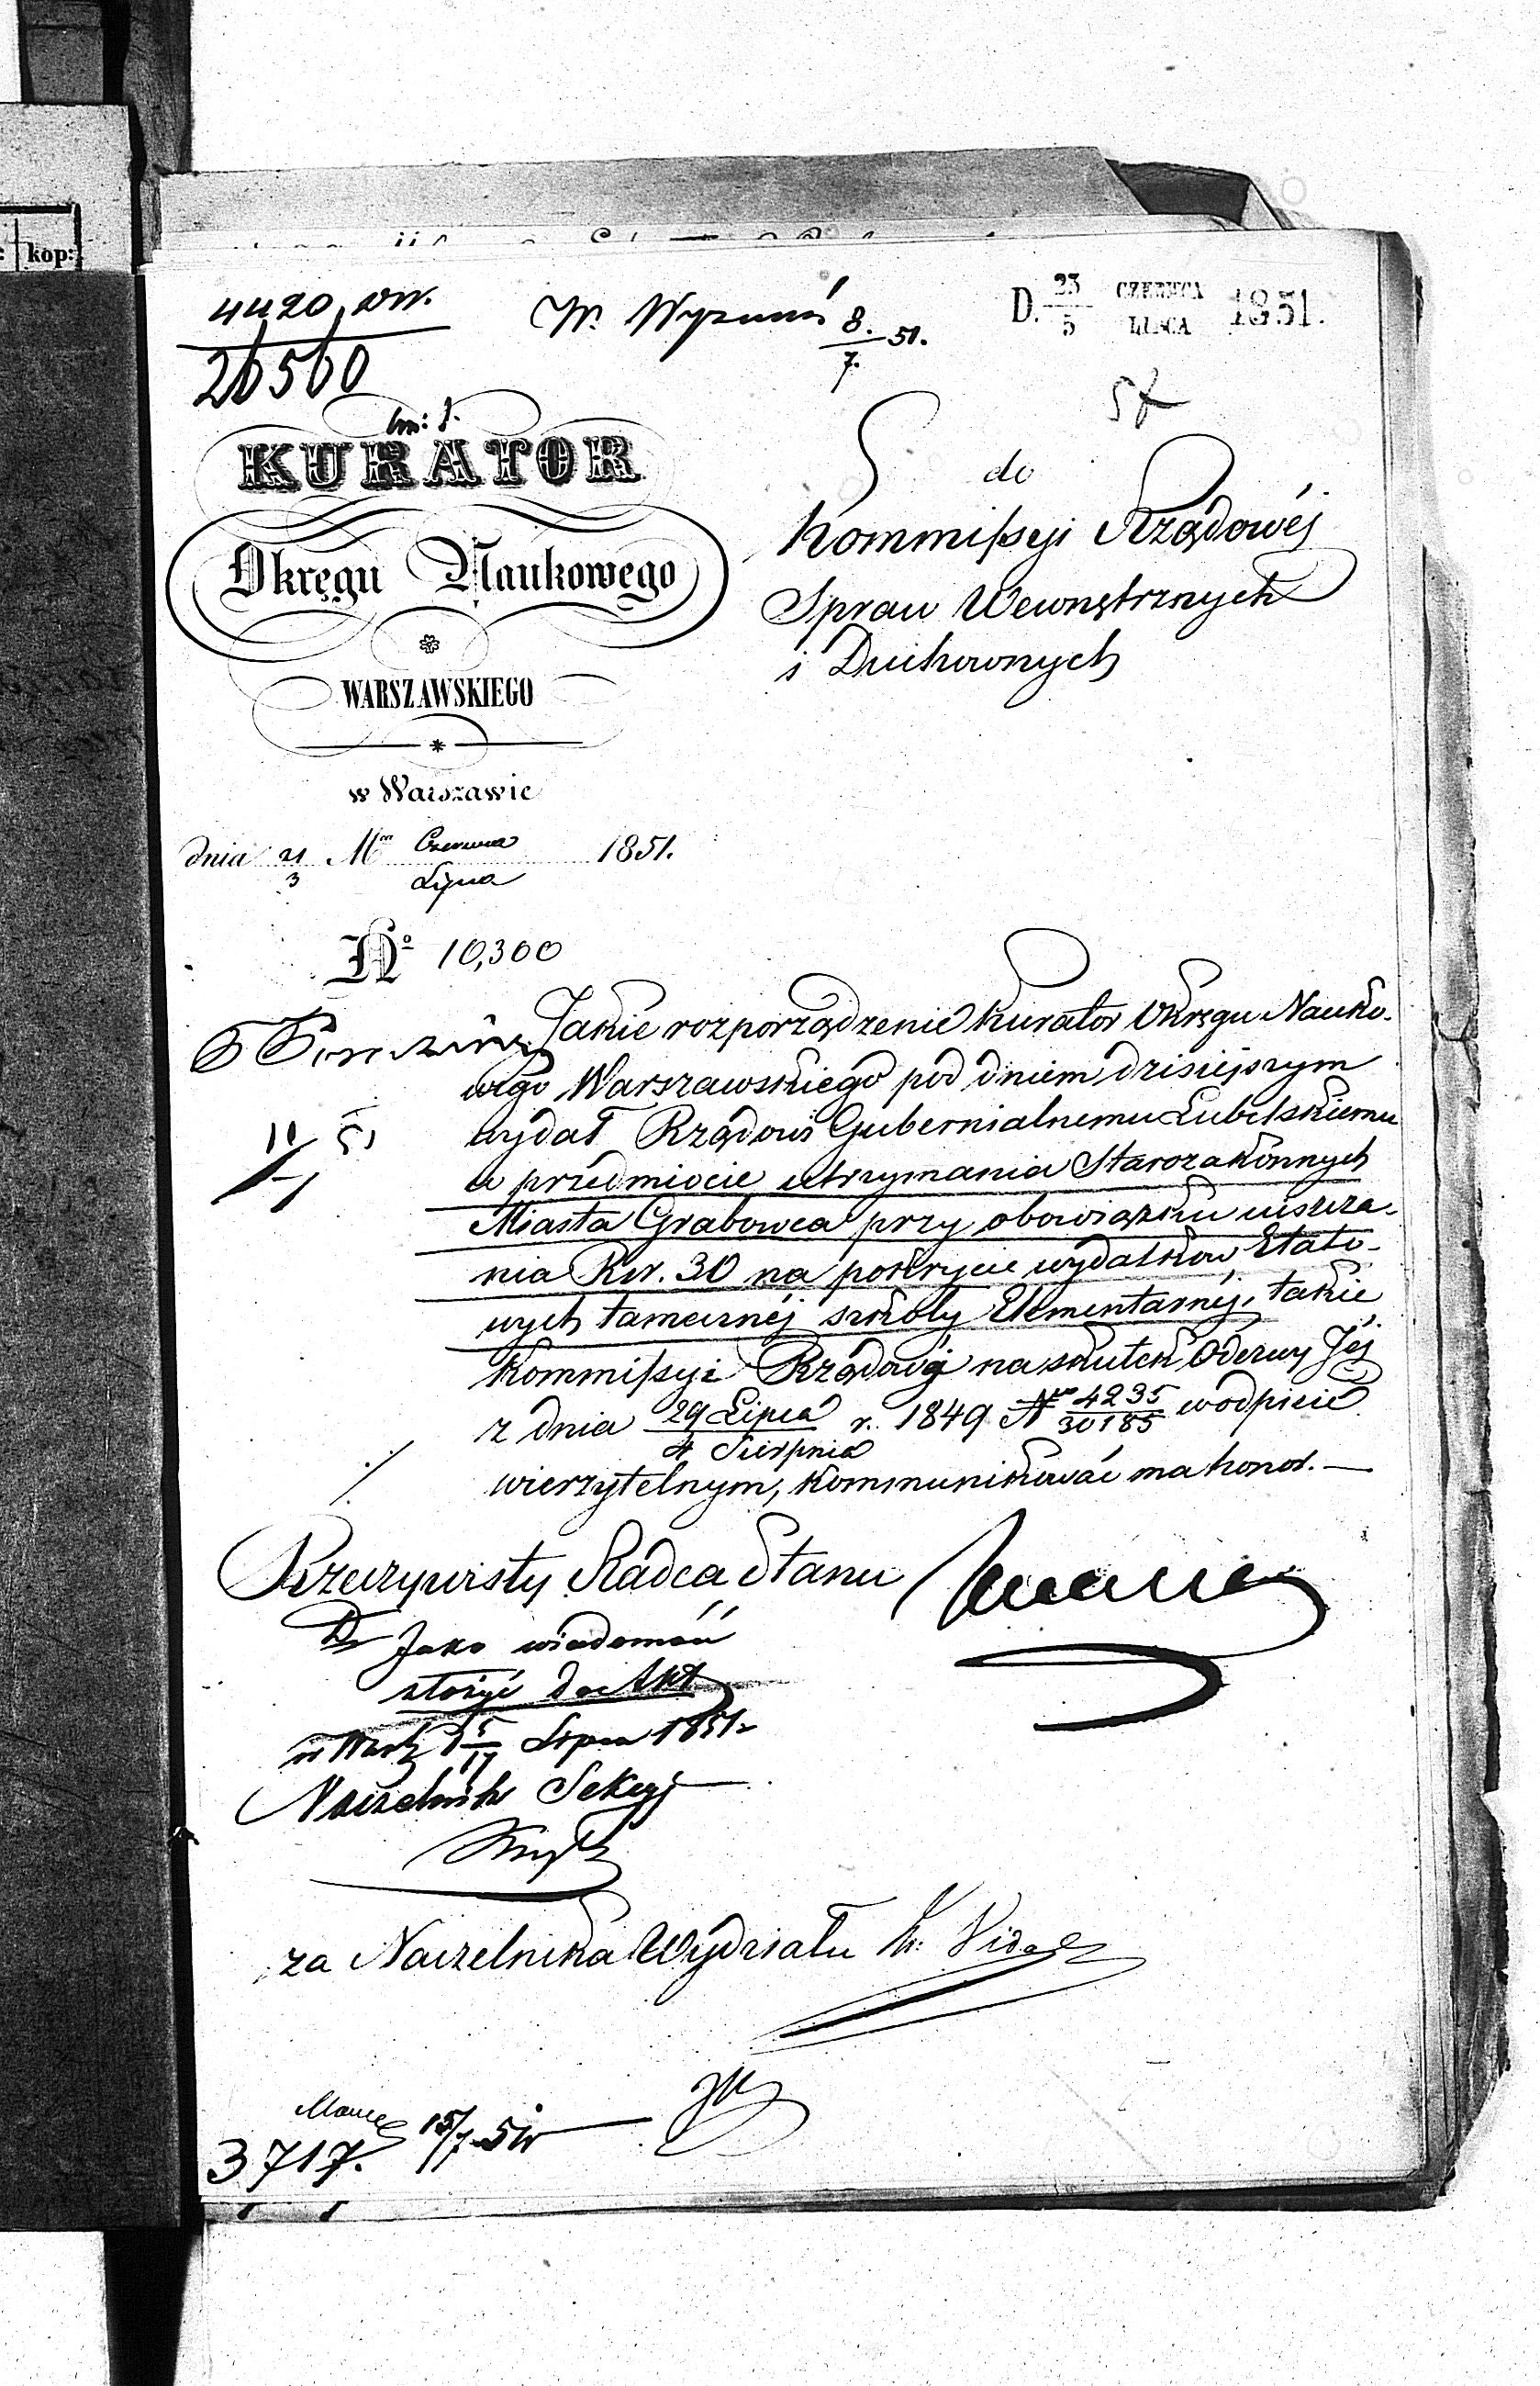 kop:
4420
26560
W. 8./7. 51.
D. 23/5 CZERWCA/LIPCA 1851.
KURATOR
Okręgu Naukowego
WARSZAWSKIEGO
w Warszawie
dnia 21/3 Mca Czerwca/Lipca 1851.
No 10,300
do
Kommissyi Rządowéj
Spraw Wewnętrznych
i Duchownych
Jakie rozporządzenie Kurator Okręgu Nauko-
wego Warszawskiego pod dniem dzisiejszym
wydał Rządowi Gubernialnemu Lubelskiemu
w przedmiocie utrzymania Starozakonnych
Miasta Grabowca przy obowiązku uiszcza-
nia Rsr. 30 na pokrycie wydatków Etato-
wych tamecznéj szkoły Elementarnéj, takie
Kommissyi Rządowéj na skutek Odezwy Jéj
z dnia 29 Lipca/4 Sierpnia r. 1849 No 4235/30185 w odpisie
wierzytelnym, kommunikować ma honor. —
Rzeczywisty Radca Stanu
Jako wiadomość
złożyć do Akt
w Warsz. d. 5/17 Lipca 1851 r
Naczelnik Sekcyi
za Naczelnika Wydziału
3717. 15/7 51